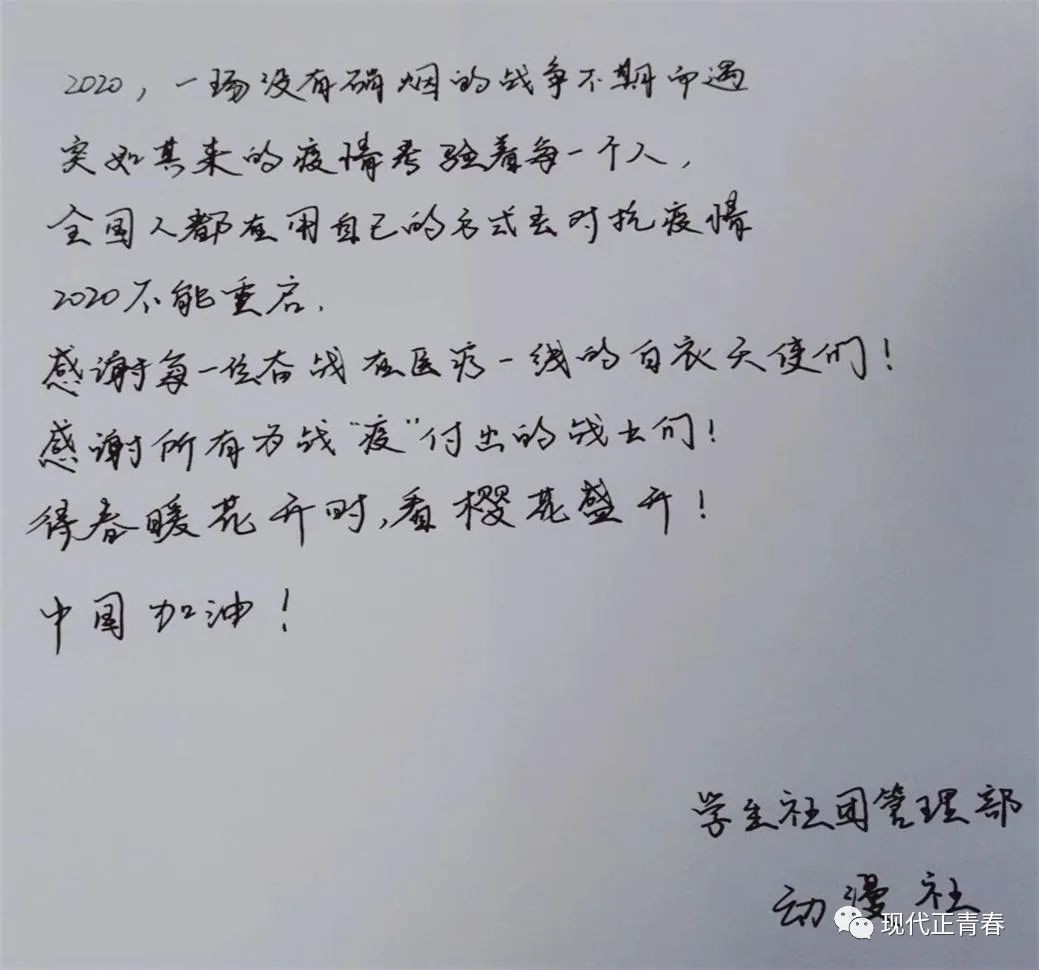 2020，一场没有硝烟的战争不期而遇
突如其来的疫情考验着每一个人，
全国人都在用自己的方式去对抗疫情
2020不能重启．
感谢每一位奋战在医疗一线的白衣天使们！
感谢所有为战“疫”付出的战士们！
待春暖花开时，看樱花盛开！
中国加油！
学生社团管理部
动漫社
现代正青春